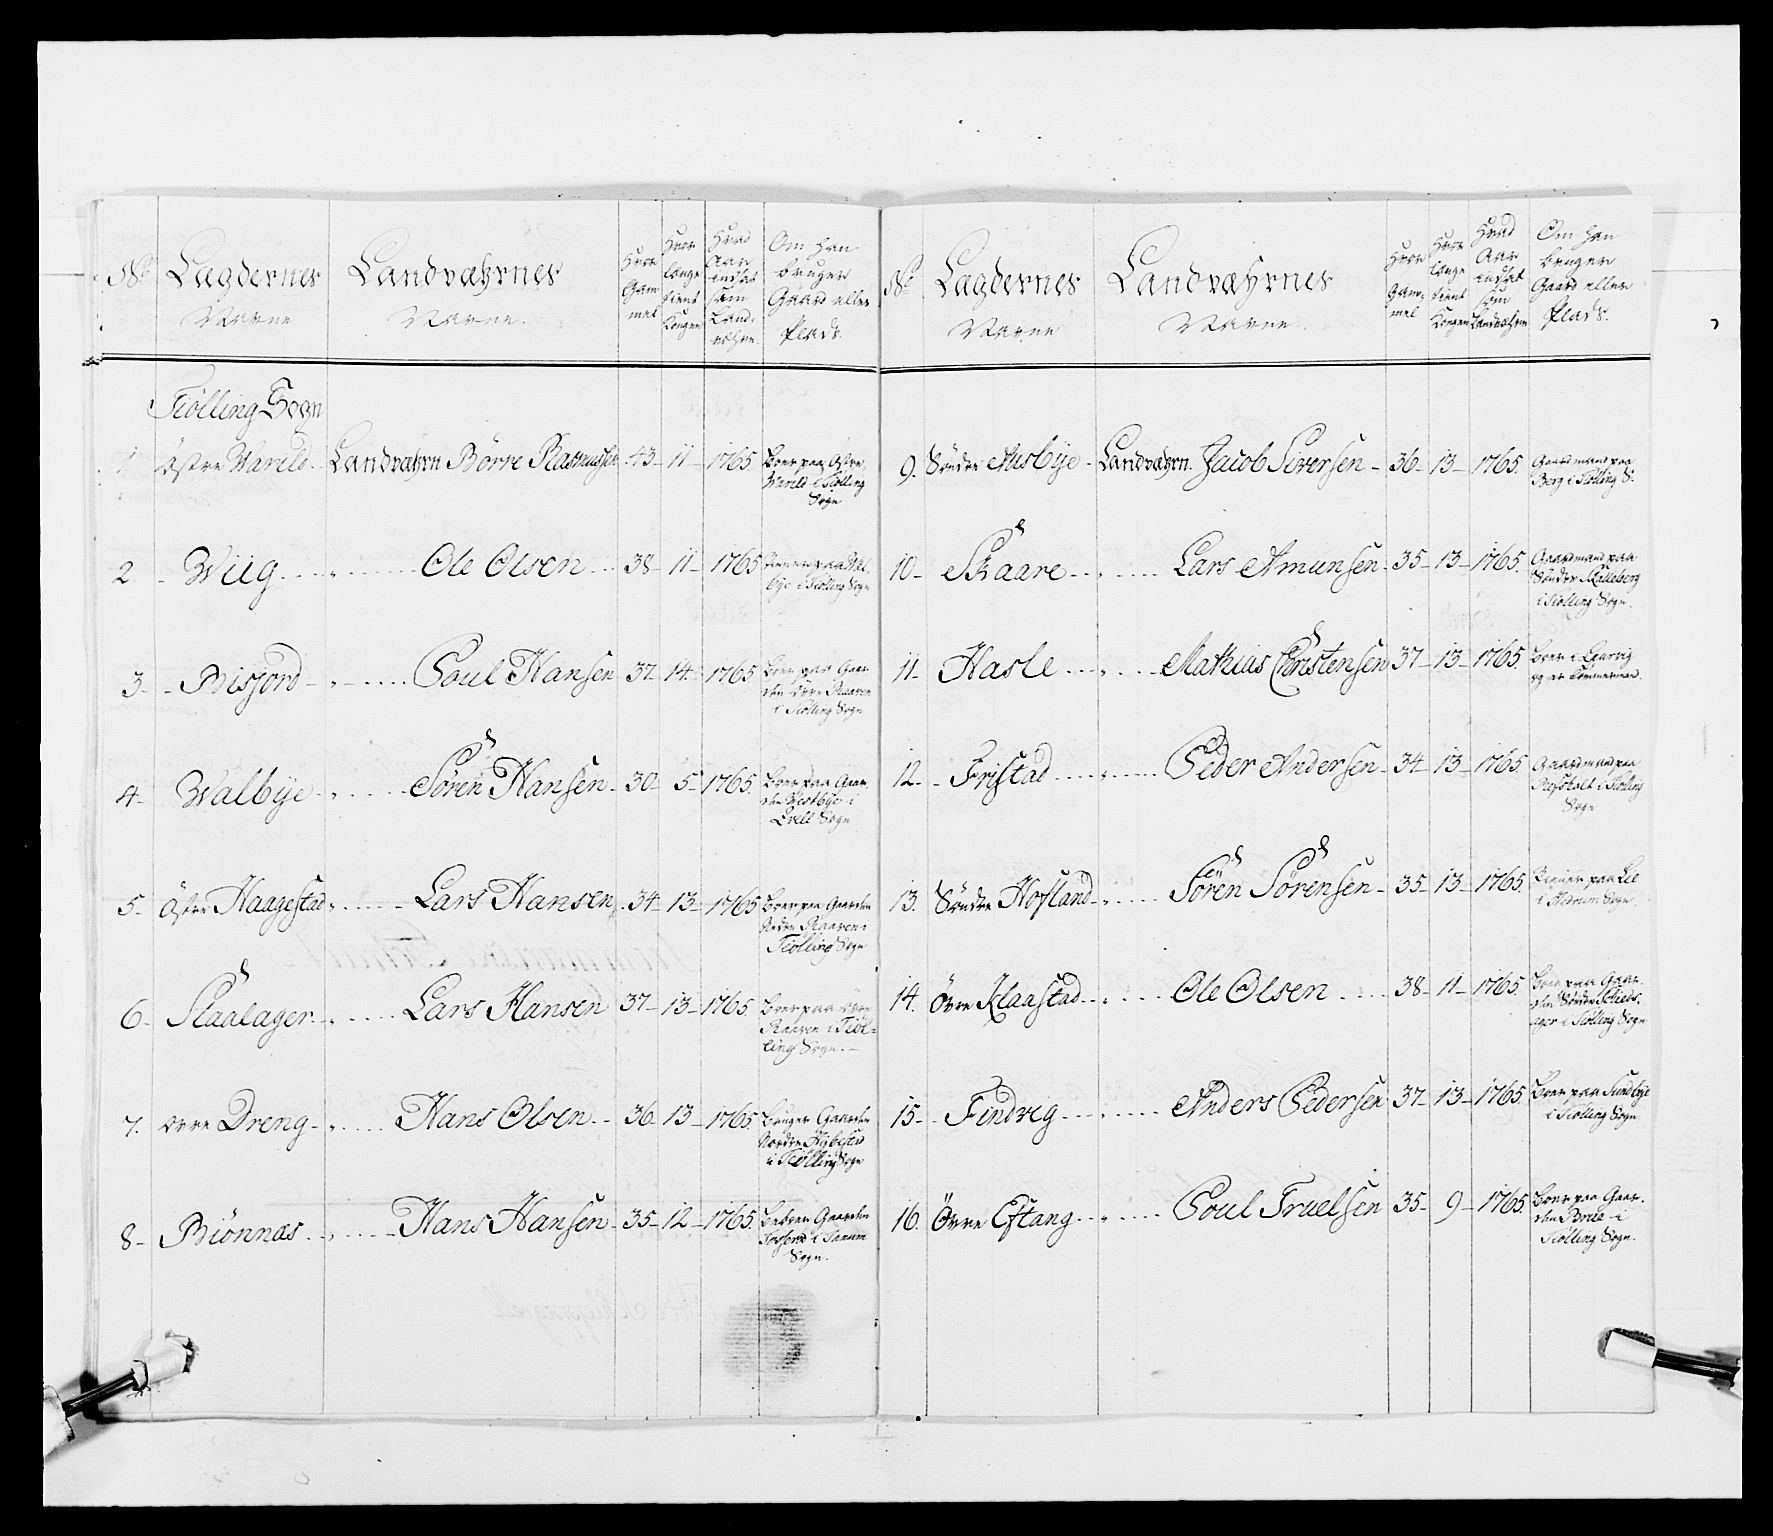 No
Lægdernes
Navne
Landværnes
Navne.
Hvor
Gam
mel
Hvor
længe
tient
Kongen
Hvad
Aar
indsat
som
Land-
væhrn.
Om han
bruger
Gaard eller
Plads.
Tiølling Sogn
1 Østre Wareld Landvæhrn Børre Rasmussen 43 11 1765. Boer paa Østre
Wareld i Tiølling
Sogn
2 Wiig Ole Olsen 38 11 1765 Tiener paa
bye i Tiølling Sogn
3 Bisjord Poul Hansen 37 14 1765 Boer paa Gaar
den Øvre Raaven
i Tiølling Sogn
4 Walbye Søren Hansen 30 5 1765. Boer paa Gaar
den Westbye i
Sogn
5 Østre Haagestad Lars Hansen 34 13 1765 Boer paa Gaarden
Nedre Raaven i
Tiølling Sogn
6 Skaalager Lars Hansen 37 13 1765. Boer paa Øvre
Raaven i Tiøl-
ling Sogn.
7. Øvre Dreng Hans Olsen 36 13 1765 Bruger Gaarden
Nordre
i Tiølling Sogn
8 Biønnæs Hans Hansen 35 12 1765. Beboer Gaarden
i Tanum
Sogn.
No
Lægdernes
Navne
Landvæhrnes
Navne.
Hvor
Gam-
mel
Hvor
længe
tient
Kongen
Hvad
Aar
indsat
som
Landvæhrn
Om han
bruger
Gaard eller
Plads.
9. Søndre Ausbye Landvæhrn. Jacob Siversen 36 13 1765. Gaardmand paa
Berg i Tiølling S.
10 Skaare Lars Amunsen 35 13 1765. Gaardmand paa
Søndre Skalleberg
i Tiølling Sogn.
11 Hasle Mathias Christensen 37 13 1765. Boer i Laurvig
og er Tømmermand.
12 Fristad Peder Andersen 34 13 1765. Gaardmand paa
i Tiølling
Sogn
13. Søndre Hofland Sören Sörensen 35 13 1765. Tiener paa Lie
i Hedrum Sogn.
14. Øvre Klaastad Ole Olsen 38 11 1765. Boer paa Gaar-
den Søndre
ager i Tiølling Sogn
15 Findvig Anders Pedersen 37 13 1765. Boer paa Sundbye
i Tiølling Sogn
16. Øvre Eftang Poul Truelsen 35 9 1765. Boer paa Gaar-
den i
Tiølling Sogn.